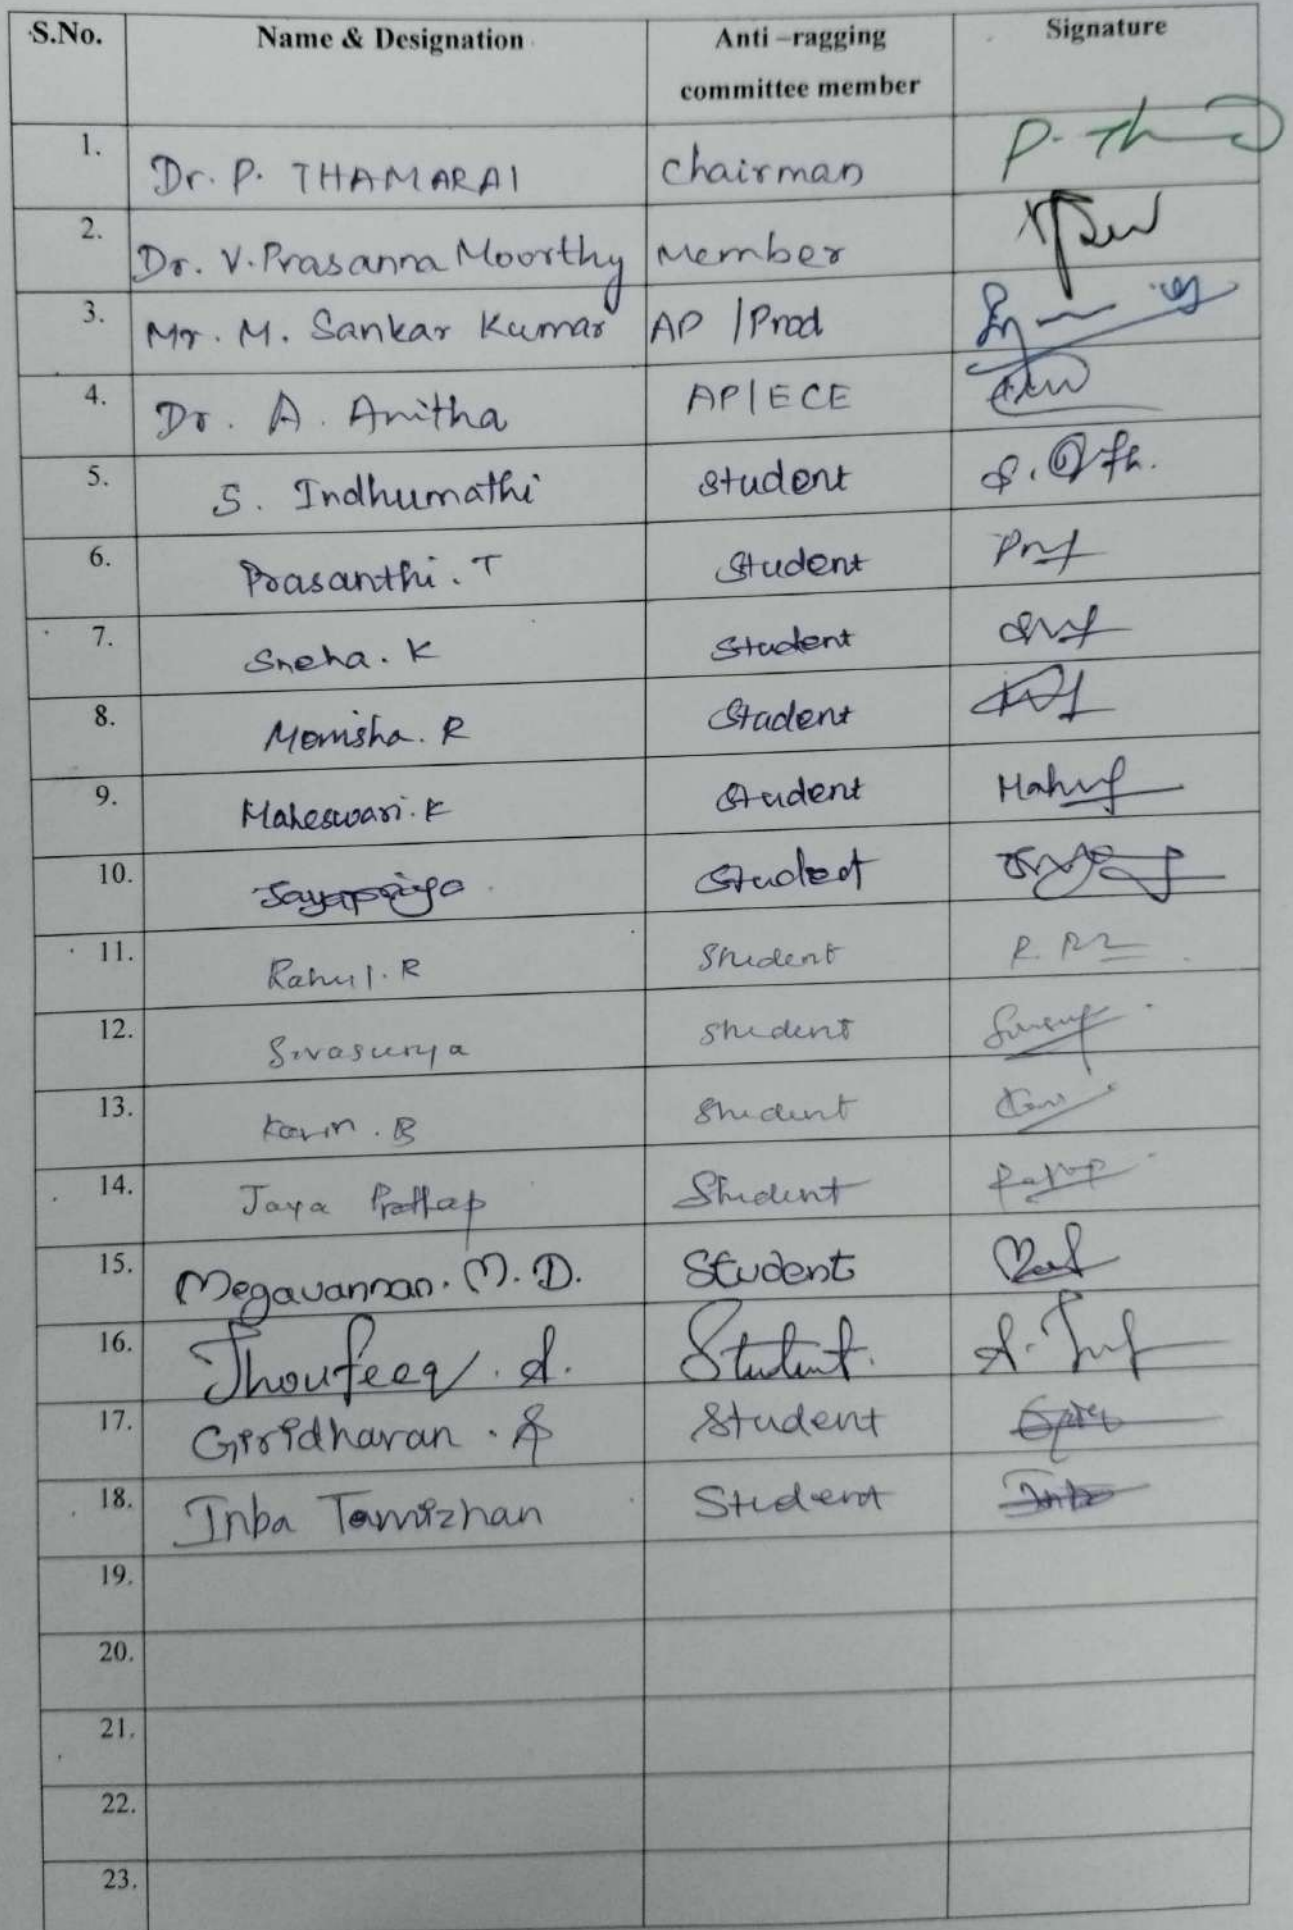 S.No. Name & Designation Anti –ragging committee member Signature
1. Dr. P. THAMARAI Chairman P. Th
2. Dr. V. Prasanna Moorthy Member
3. Mr. M. Sankar Kumar AP /Prod
4. Dr. A. Anitha AP/ECE
5. S. Indhumathi Student
6. Prasanthi. T Student
7. Sneha. K Student
8. Monisha. R Student
9. Maheswari. K Student
10. Jayapriya Student
11. Rahul. R Student
12. Sivasurya Student
13. Kavin. B Student
14. Jaya Prattap Student
15. Megavannan. M. D. Student
16. Thoufeeq. A. Student.
17. Giridharan. S Student
18. Inba Tamizhan Student
19.
20.
21.
22.
23.